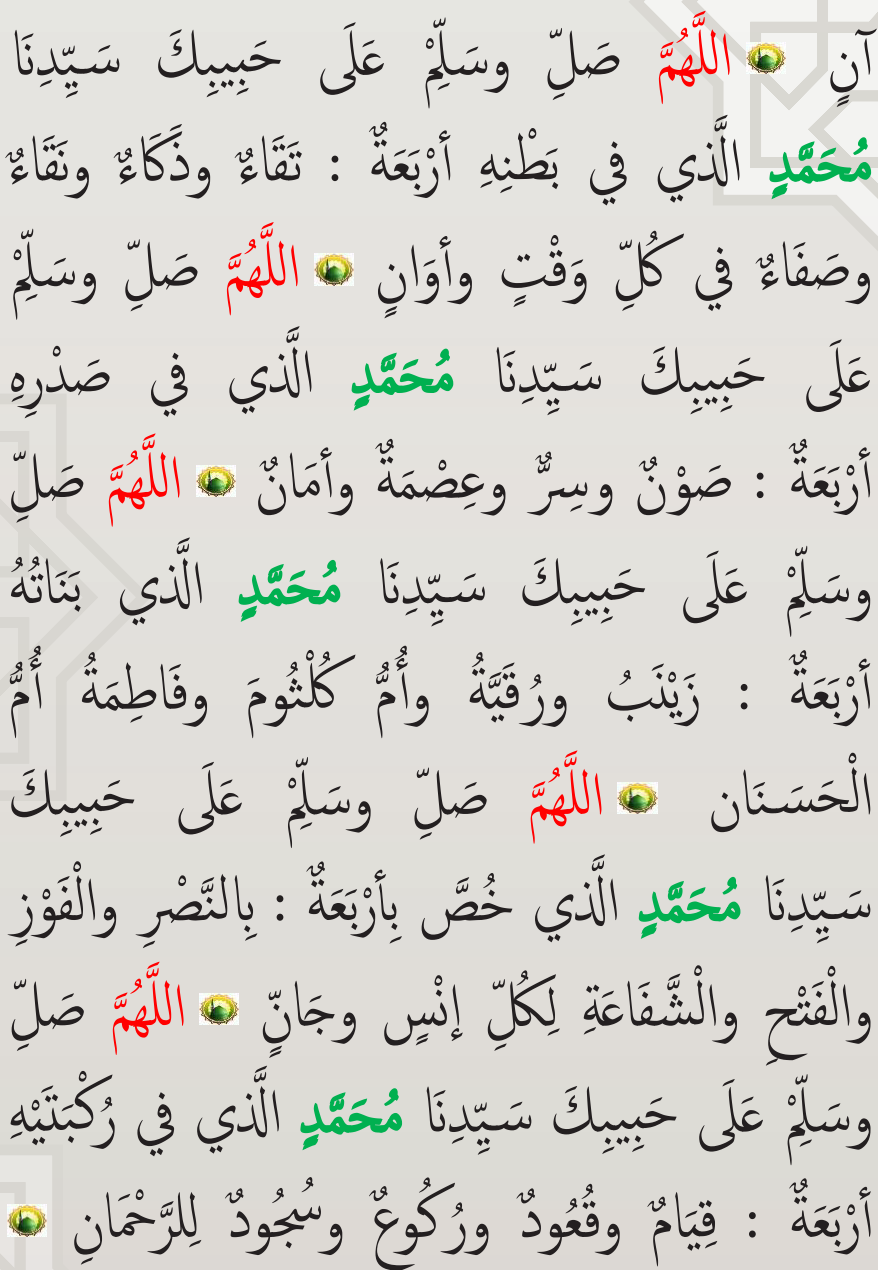 آنٍ اللَّهُمَّ صَلِّ وسَلِّمْ عَلَى حَبِيبِكَ سَيِّدِنَا
مُحَمَّدٍ الَّذي في بَطْنِهِ أرْبَعَةٌ : تَقَاءٌ وذَّكَاءٌ ونَقَاءٌ
وصَفَاءٌ في كُلِّ وَقْتٍ وأوَانٍ اللَّهُمَّ صَلِّ وسَلِّمْ
عَلَى حَبِيبِكَ سَيِّدِنَا مُحَمَّدٍ الَّذي في صَدْرِهِ
أرْبَعَةٌ : صَوْنٌ وسِرٌّ وعِصْمَةٌ وأمَانٌ اللَّهُمَّ صَلِّ
وسَلِّمْ عَلَى حَبِيبِكَ سَيِّدِنَا مُحَمَّدٍ الَّذي بَنَاتُهُ
أرْبَعَةٌ : زَيْنَبُ ورُقَيَّةُ وأُمُّ كُلْثُومَ وفَاطِمَةُ أُمُّ
الْحَسَنَان اللَّهُمَّ صَلِّ وسَلِّمْ عَلَى حَبِيبِكَ
سَيِّدِنَا مُحَمَّدٍ الَّذي خُصَّ بِأرْبَعَةٌ : بِالنَّصْرِ والْفَوْزِ
والْفَتْحِ والْشَّفَاعَةِ لِكُلِّ إنْسٍ وجَانٍّ اللَّهُمَّ صَلِّ
وسَلِّمْ عَلَى حَبِيبِكَ سَيِّدِنَا مُحَمَّدٍ الَّذي في رُكْبَتَيْهِ
أرْبَعَةٌ : قِيَامٌ وقُعُودٌ ورُكُوعٌ وسُجُودٌ لِلرَّحْمَانِ